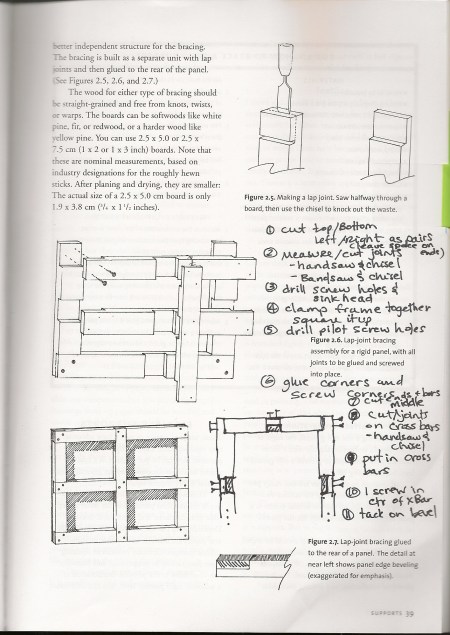 better independent structure for the bracing.
The bracing is built as a separate unit with lap
joints and then glued to the rear of the panel.
(See Figures 2.5, 2.6, and 2.7.)
The wood for either type of bracing should
be straight-grained and free from knots, twists,
or warps. The boards can be softwoods like white
pine, fir, or redwood, or a harder wood like
yellow pine. You can use 2.5 x 5.0 or 2.5 x
7.5 cm (1 x 2 or 1 x 3 inch) boards. Note that
these are nominal measurements, based on
industry designations for the roughly hewn
sticks. After planing and drying, they are smaller:
The actual size of a 2.5 x 5.0 cm board is only
1.9 x 3.8 cm (3/4 x 1 1/2 inches).
Figure 2.5. Making a lap joint. Saw halfway through a
board, then use the chisel to knock out the waste.
① cut top/Bottom
Left/Right as pairs
(leave space on
ends)
② measure/cut joints
- handsaw & chisel
- Bandsaw & chisel
③ drill screw holes &
sink head
④ clamp frame together
square it up
⑤ drill pilot screw holes
Figure 2.6. Lap-joint bracing
assembly for a rigid panel, with all
joints to be glued and screwed
into place.
⑥ glue corners and
screw corners
⑦ cut ends & bars
middle
⑧ cut/joints
on cross bars
- handsaw &
chisel
⑨ put in cross
bars
⑩ 1 screw in
ctr of XBar
⑪ tack on bevel
Figure 2.7. Lap-joint bracing glued
to the rear of a panel. The detail at
near left shows panel edge beveling
(exaggerated for emphasis).
SUPPORTS 39